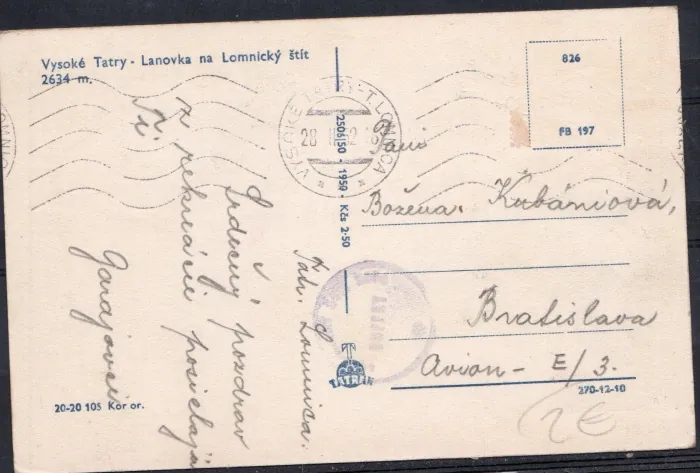 Vysoké Tatry - Lanovka na Lomnický štít
2634 m.
Tatr. Lomnica.
Srdečný pozdrav
z rekreácie posielajú
Garajovší
VYSOKÉ TATRY-T. LOMNICA
28
2506/50 - 1950 - Kčs 2·50
TATRAN
826
FB 197
Pani
Božena Kubániová,
Bratislava
Avion - E/3.
270-12-10
20-20 105 Kor or.
2€